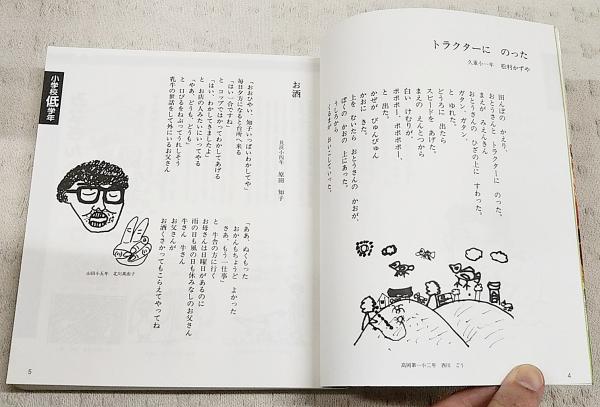 トラクターに のった
久重小一年 松村かずや
田んぼの かえり、
おとうさんと トラクターに のった。
まえが みえんきん
おとうさんの ひざの上に すわった。
ガタン、ガタン。
と ゆれた。
どうろに 出たら
スピードを あげた。
まえの えんとつから
白い けむりが、
ポポポポー、ポポポポー、
と 出た。
かぜが ぴゅんぴゅん
かおに きた。
上を むいたら おとうさんの かおが、
ぼくの かおの 上にあった。
うしろから
くるまが おいこしていった。
高岡第一小三年 西川 ごう
4
小学校低学年
お酒
長浜小四年 原田 知子
「おおびやい、知子いっぱいわかしてや」
毎日夕方になると台所へ来る
「はい一合ですね」
と コップではかってわかしてあげる
「はい、わかしてきましたよ」
と お店の人みたいにいってやる
「やあ、どうも、どうも」
と 口びるをねぶってうれしそう
乳牛の世話をして外にいるお父さん
「ああ、ぬくもった
おかんもちょうど よかった
さあ、もう一仕事」
と 牛舎の方に行く
お母さんは日曜日があるのに
雨の日も風の日も休みなしのお父さん
牛さん 牛さん
お父さんが
お酒くさかってもこらえてやってね
山田小五年 北川真由子
5